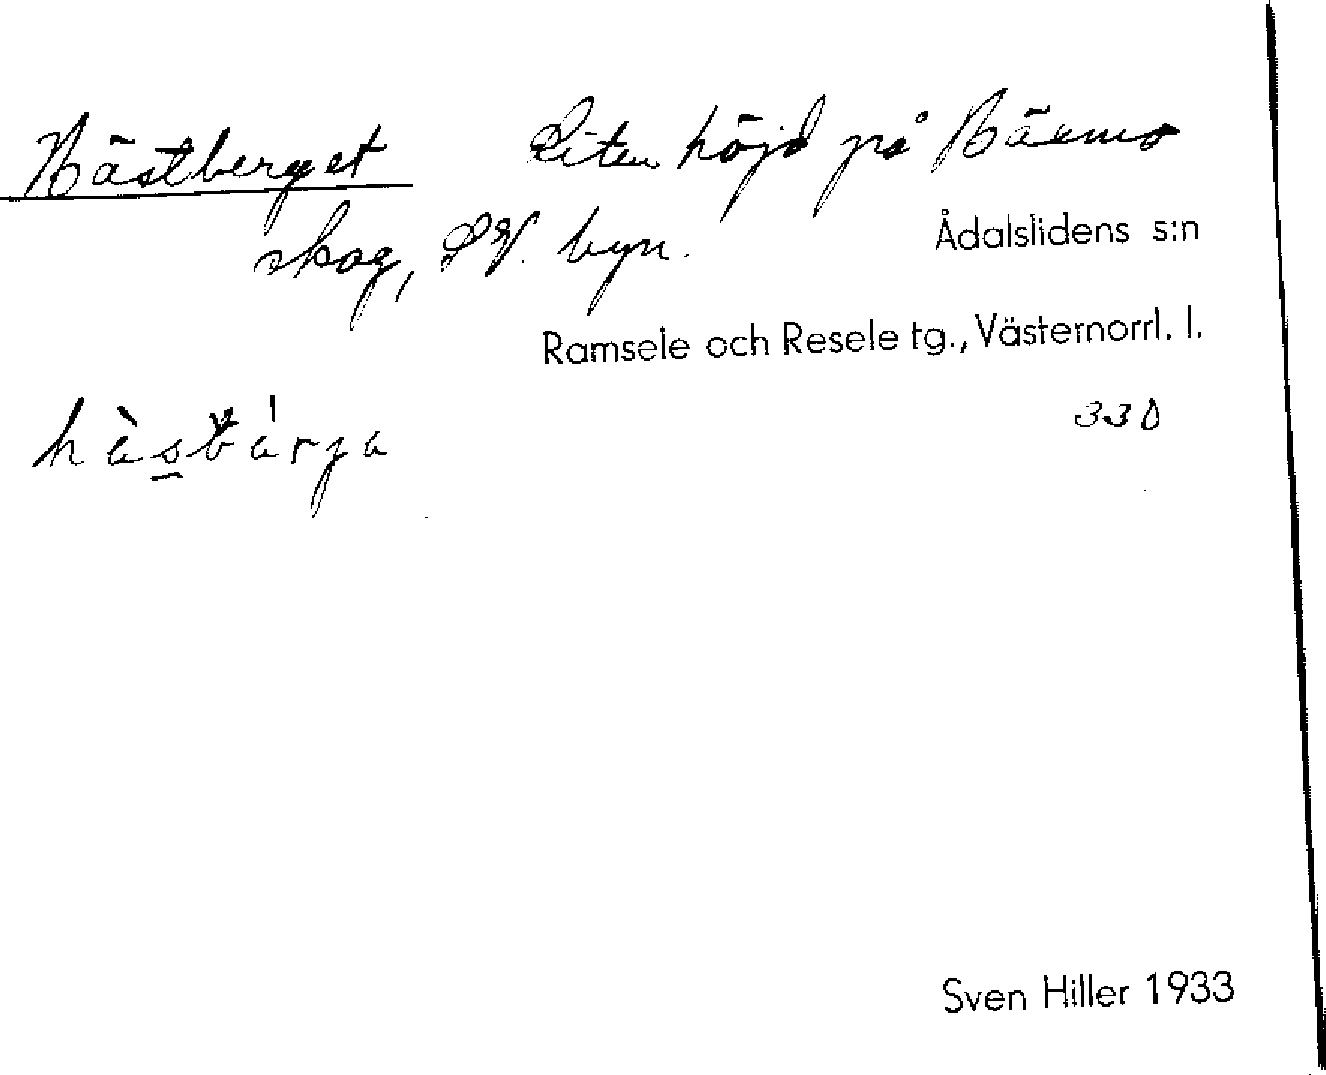 Hästberget Liten höjd på Bäsmo
skog, SV. byn.
Ådalslidens s:n
Ramsele och Resele tg., Västernorrl. l.
330
Sven Hiller 1933